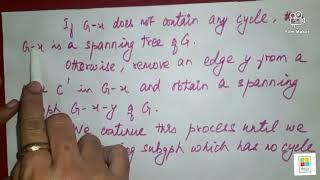 If G-x does not contain any cycle, th
G-x is a spanning tree of G.
Otherwise, remove an edge y from a
C' in G-x and obtain a spanning
G-x-y of G.
We continue this process until we
subgph which has no cycle